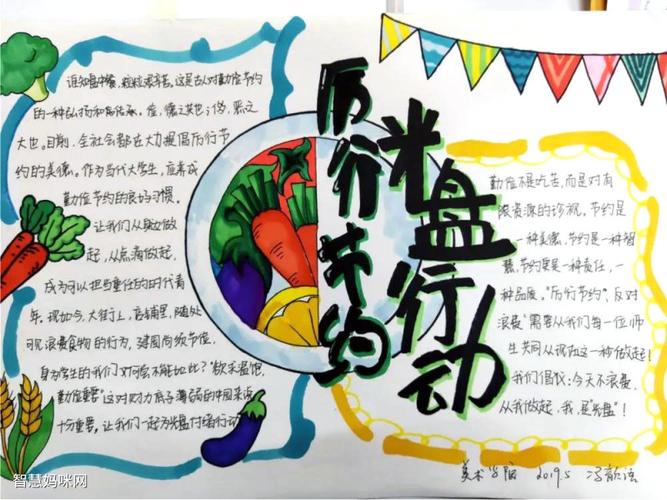 厉行节约
光盘行动
谁知盘中餐，粒粒皆辛苦，这是古人对勤俭节约
的一种弘扬和高传承。俭，德之共也；侈，恶之
大也。目前，全社会都在大力提倡厉行节
约的美德。作为当代大学生，应养成
勤俭节约的良好习惯。
让我们从身边做
起，从点滴做起，
成为可以担当重任的的时代青
年。现如今，大街上，店铺里，随处
可见浪费食物的行为，建国尚须节俭，
身为学生的我们又何尝不能如此？"饮水盈饱，
勤俭重要"这对财力底子薄弱的中国来说
十分重要，让我们一起为光盘付诸行动
勤俭不是吃苦，而是对有
限资源的珍视。节约是
一种美德，节约是一种智
慧，节约更是一种责任，一
种品质。"厉行节约，反对
浪费"需要从我们每一位师
生共同从现在这一秒做起！
我们倡议：今天不浪费，
从我做起，我是"光盘"！
美术学院 2019.5 冯歆语
智慧妈咪网